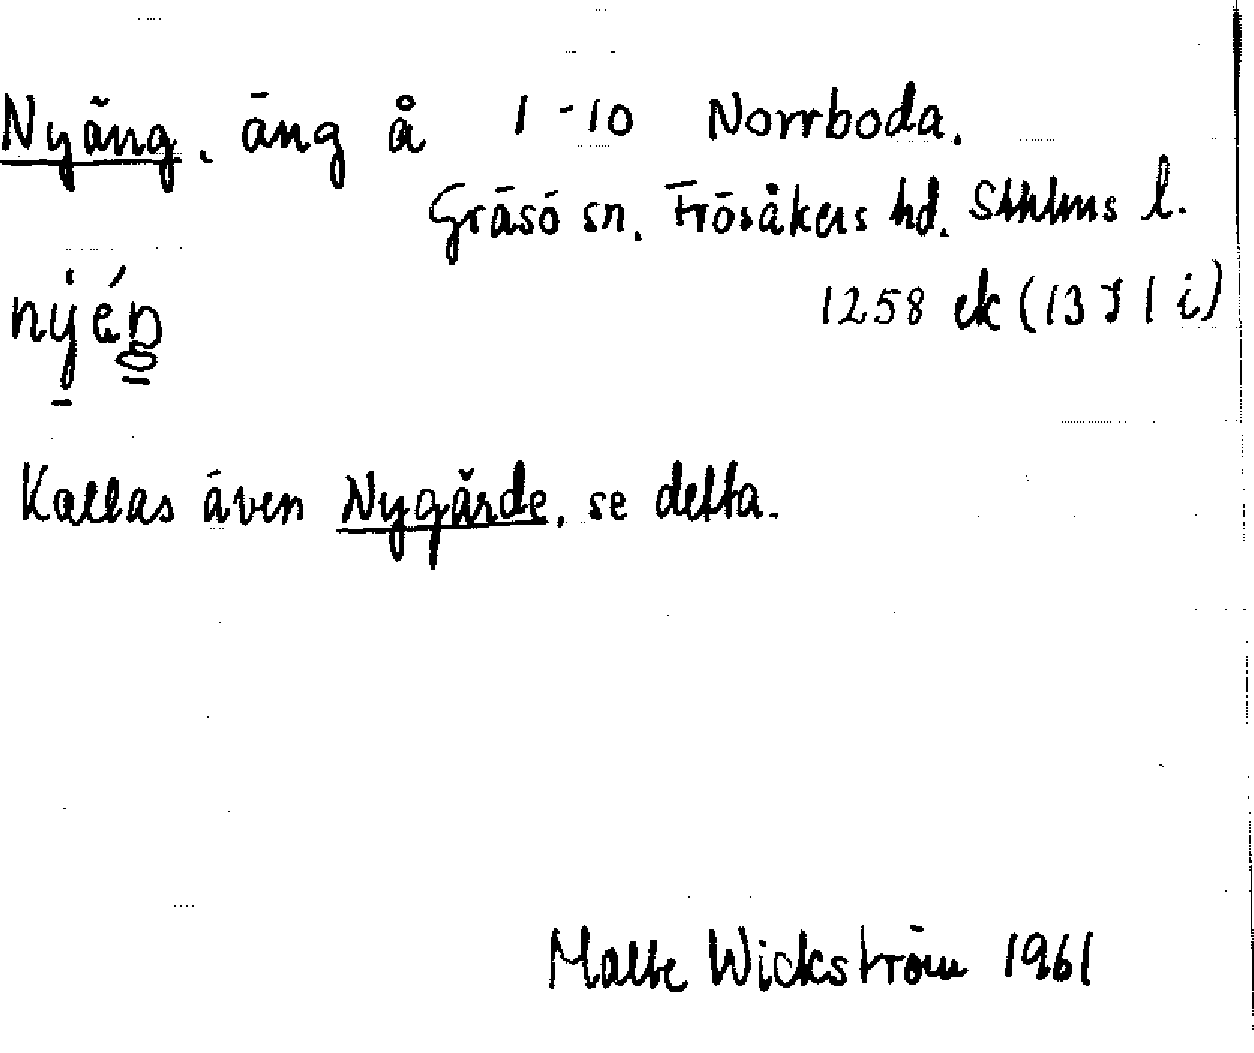 Nyäng, äng å 1-10 Norrboda.
Gräsö sn. Frösåkers hd. Sthlms l.
1258 ek (13 I 1 i)
Kallas även Nygärde, se detta.
Malte Wickström 1961